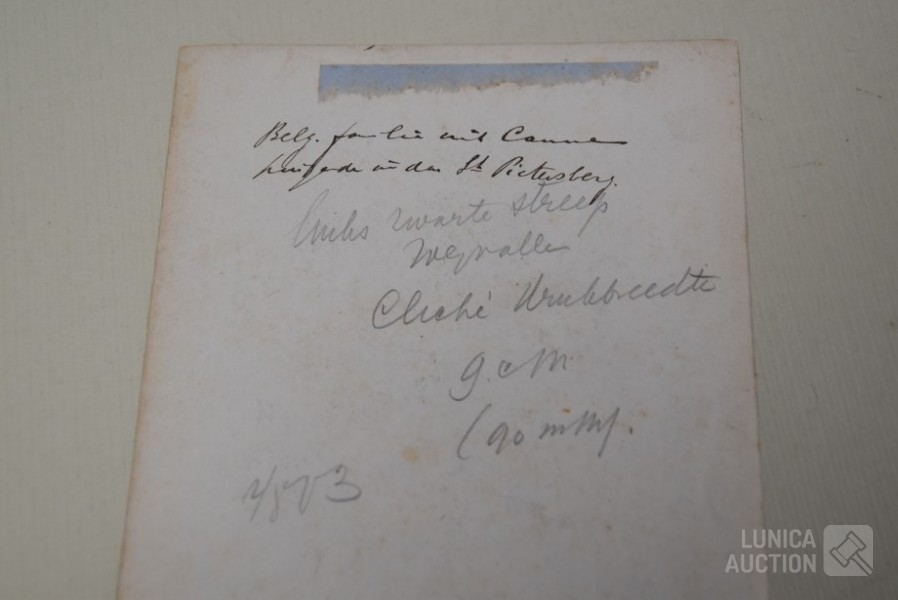 Belg. familie uit Canne
in den St Pietersberg.
Links zwarte streep
wegvallen
Cliché Drukbreedte
9 cM
(90 mM).
LUNICA
AUCTION